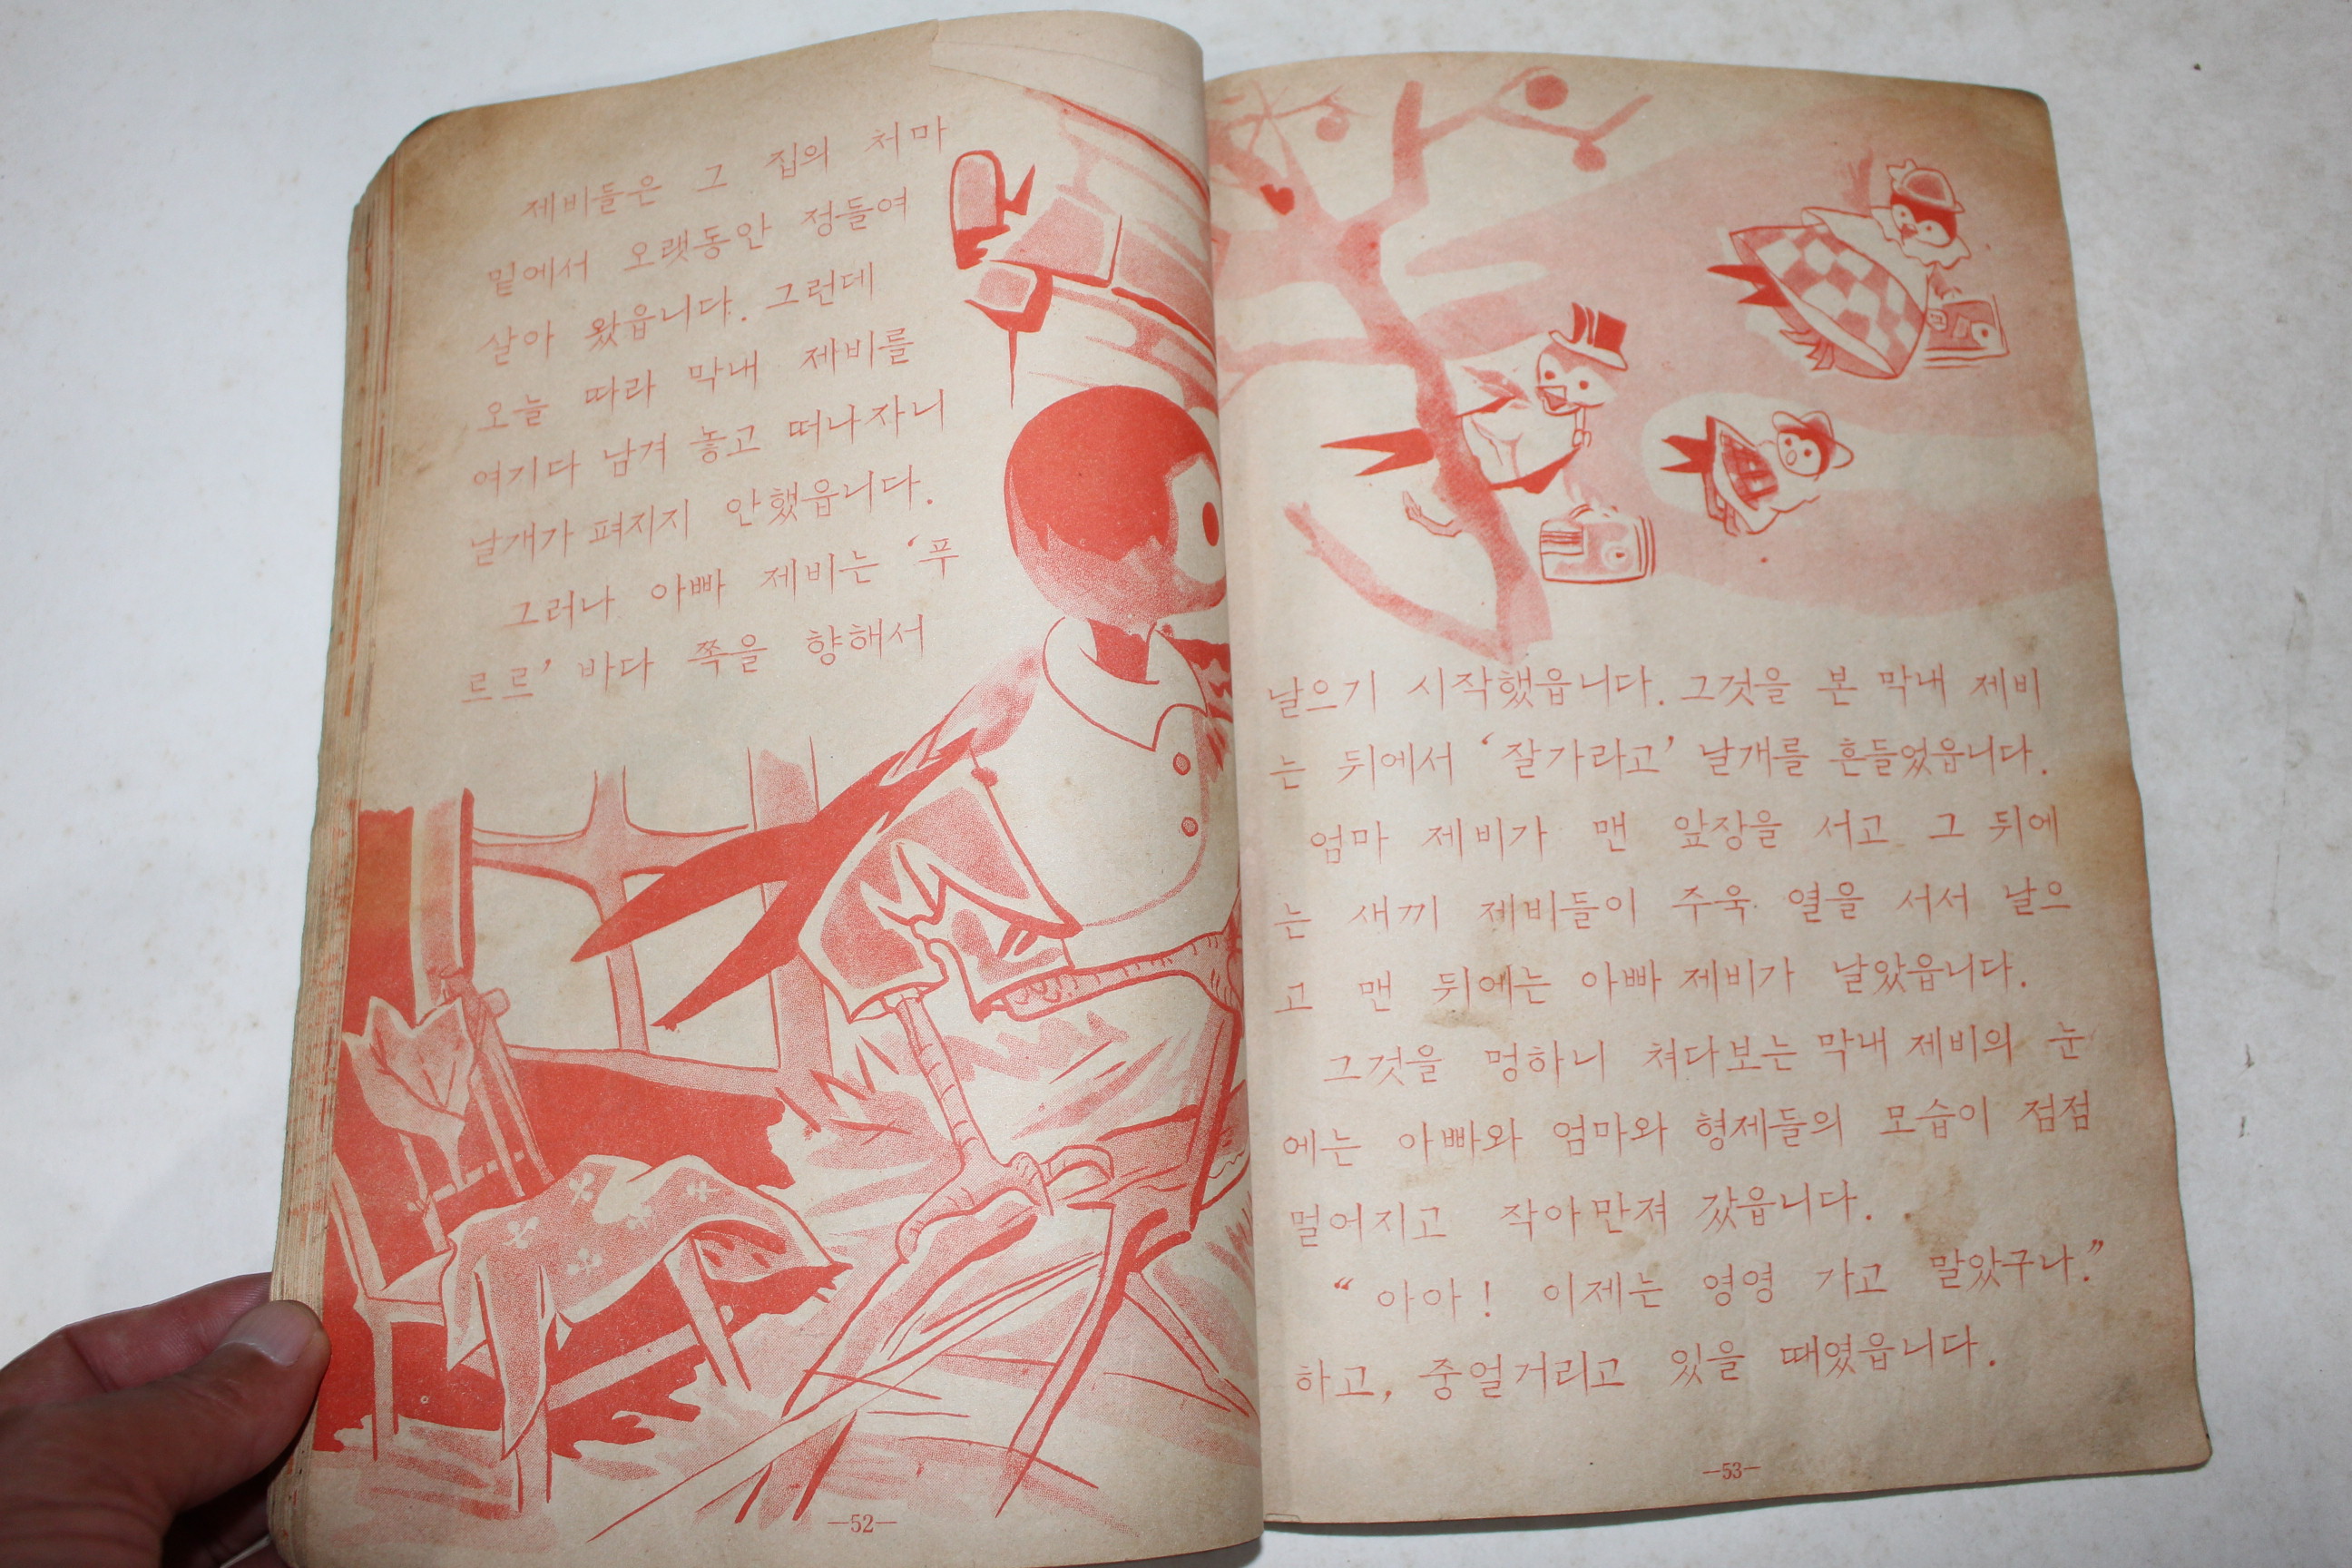 제비들은 그 집의 처마
밑에서 오랫동안 정들여
살아 왔읍니다. 그런데
오늘 따라 막내 제비를
여기다 남겨 놓고 떠나자니
날개가 펴지지 안했읍니다.
그러나 아빠 제비는 ‘푸
르르’ 바다 쪽을 향해서
—52—
날으기 시작했읍니다. 그것을 본 막내 제비
는 뒤에서 ‘잘가라고’ 날개를 흔들었읍니다.
엄마 제비가 맨 앞장을 서고 그 뒤에
는 새끼 제비들이 주욱 열을 서서 날으
고 맨 뒤에는 아빠 제비가 날았읍니다.
그것을 멍하니 쳐다보는 막내 제비의 눈
에는 아빠와 엄마와 형제들의 모습이 점점
멀어지고 작아만져 갔읍니다.
“아아! 이제는 영영 가고 말았구나.”
하고, 중얼거리고 있을 때였읍니다.
—53—